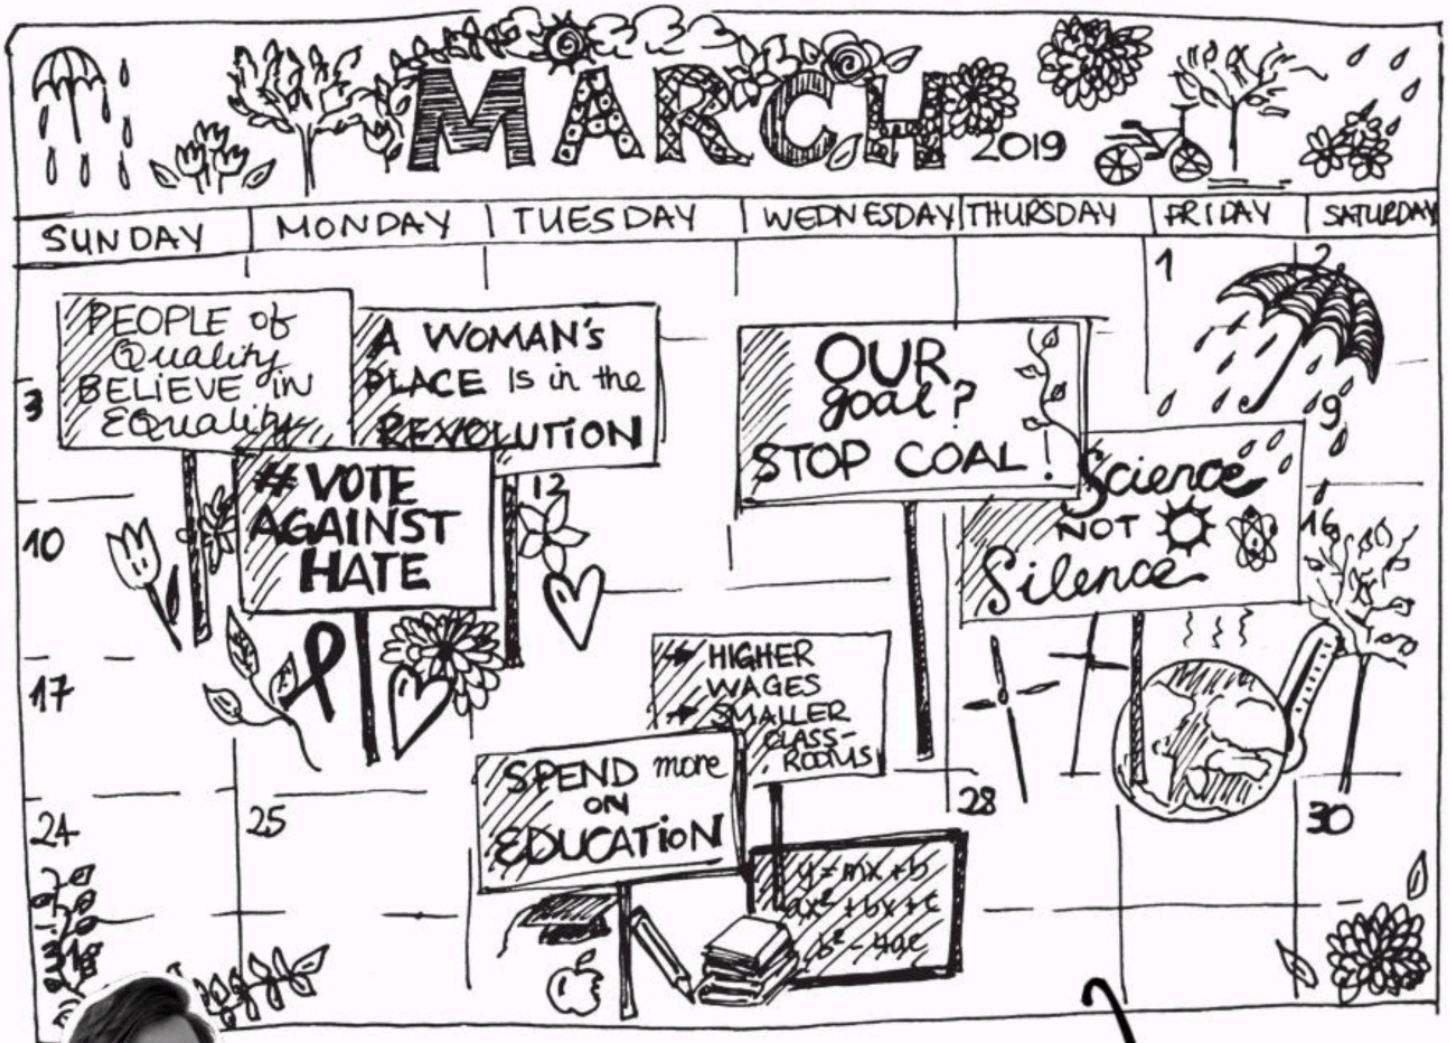 MARCH 2019
SUNDAY MONDAY TUESDAY WEDNESDAY THURSDAY FRIDAY SATURDAY
1 2
PEOPLE of
Quality
BELIEVE IN
EQuality
A WOMAN'S
PLACE is in the
REVOLUTION
OUR
goal?
STOP COAL!
3
9
#VOTE
AGAINST
HATE
Science
NOT
Silence
10
12
16
17
→ HIGHER
WAGES
→ SMALLER
CLASS-
ROOMS
SPEND more
ON
EDUCATION
24
25
28
30
y=mx+b
ax²+bx+c
b²-4ac
31